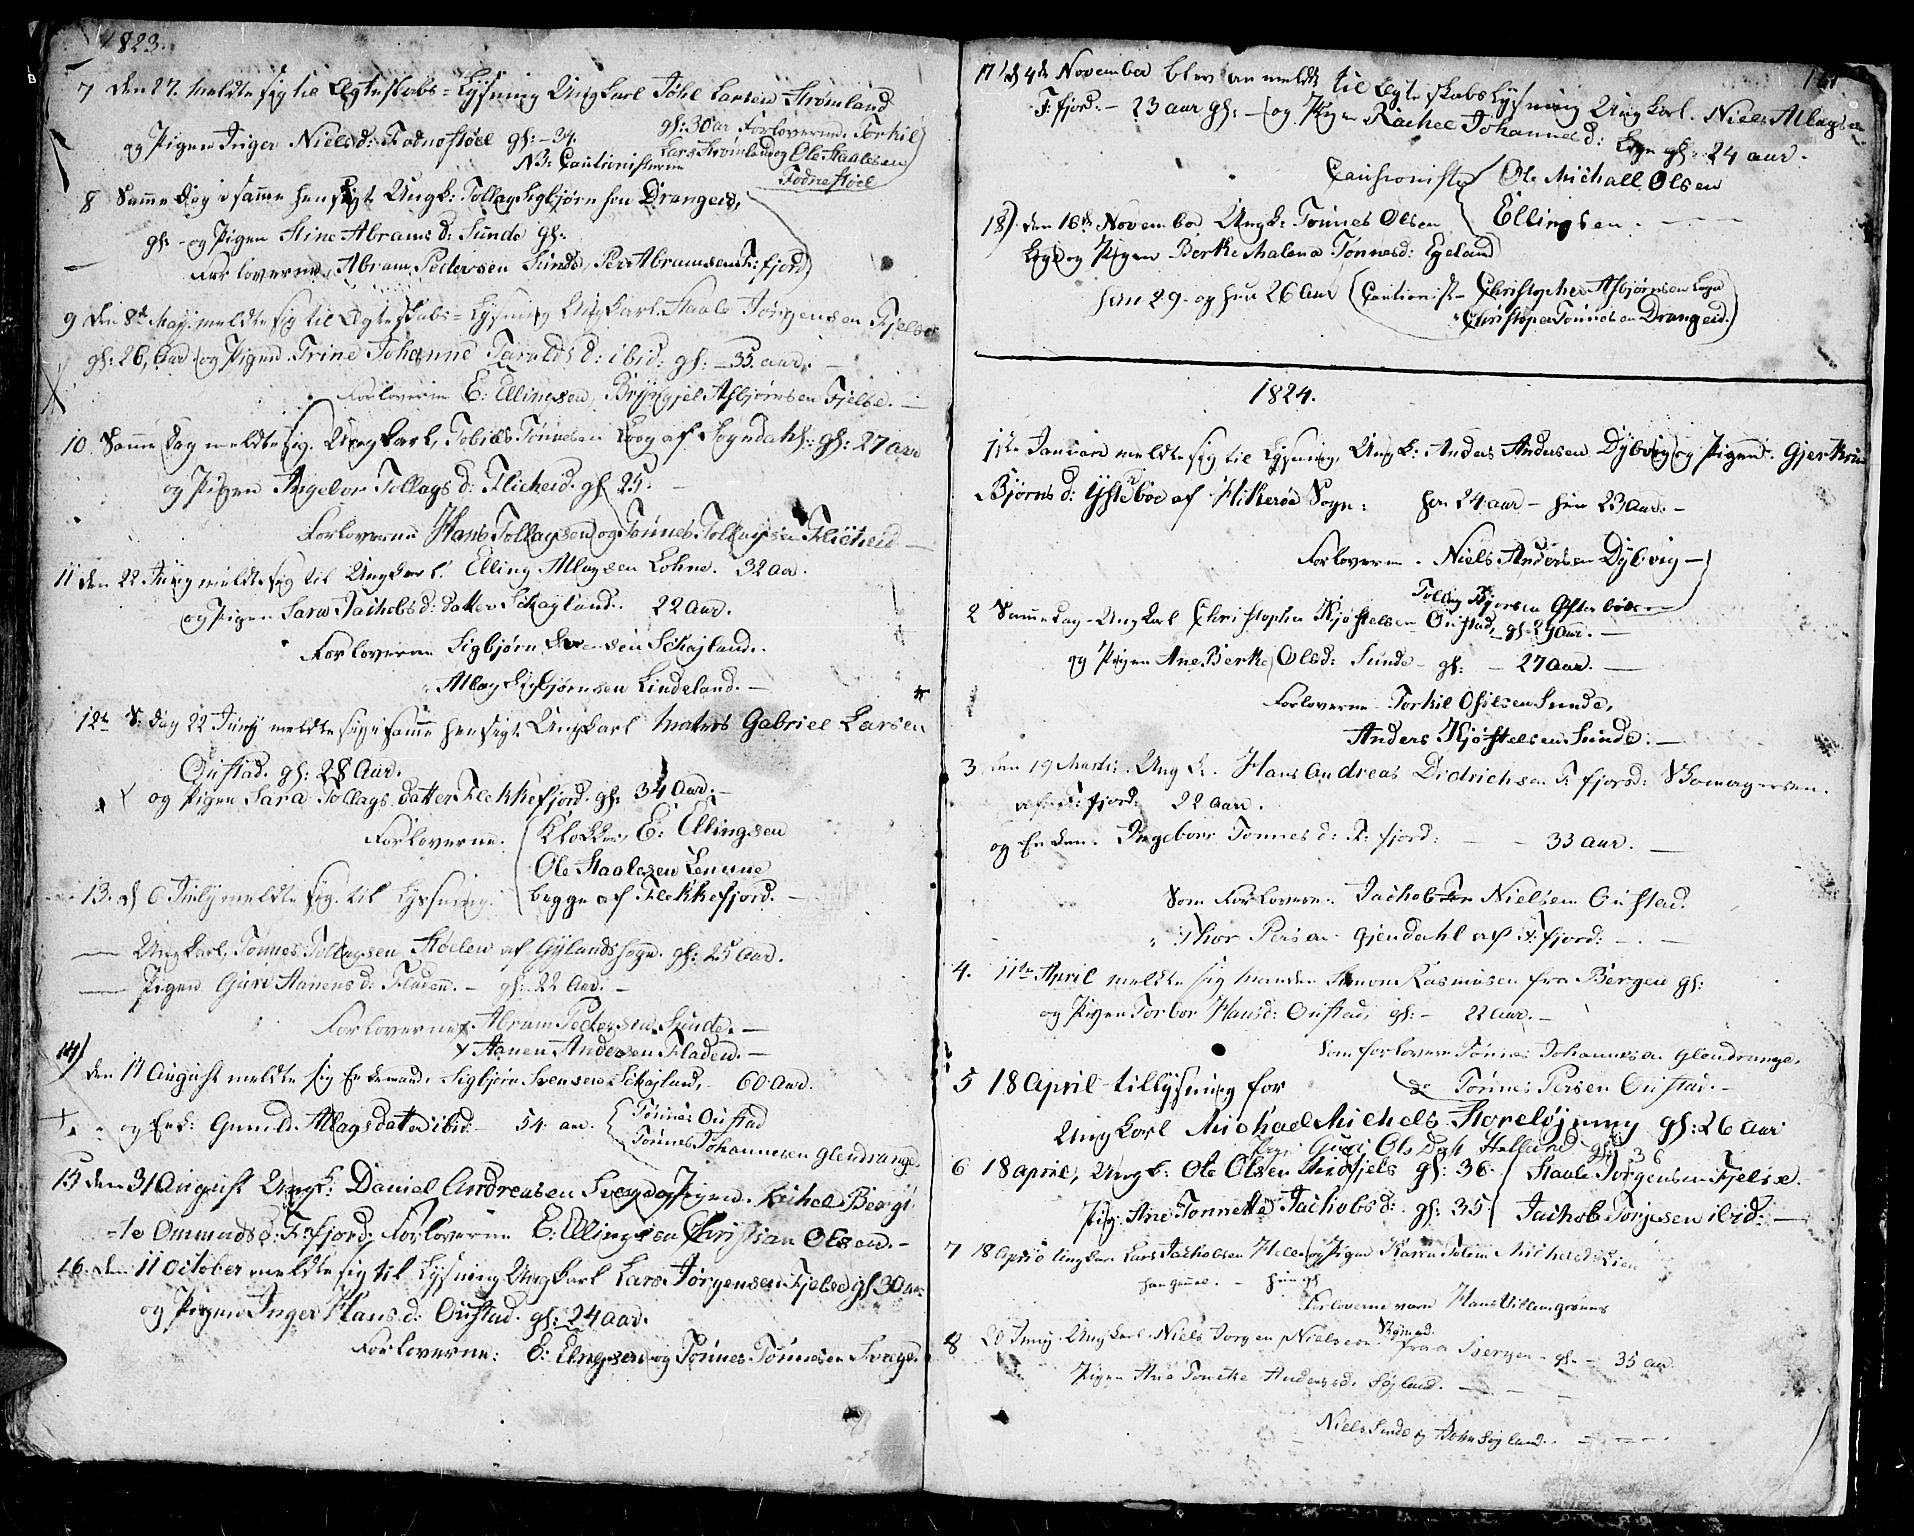 1823.
7 den 27. meldte sig til Ægteskabs=Lysning Ungkarl Johl Larsen Strømland
gl: 30 ar Forloverne. Torkil
og Pigen Inger Nielsd: Fodnestøel gl: - 34. Lars Strømland og Ole Staalesen
NB: Cautionisterne Fodnestøel
8 Samme Dag i samme hensigt Ungk: Tollag Sigbjørnsen Drangeid,
gl: - og Pigen Stine Abrams d: Sunde gl:
Forloverne, Abram Pedersen Sunde, Per Abramsen F: fjord
9 den 8de May. meldte sig til Ægteskabs=Lysning Ungkarl. Staale Jørgensen Fjelse
gl: 26, Aar og Pigen Trine Johanne Taralds d: ibid: gl: - 35. aar. -
Forloverne E: Ellingsen, Brynjel Asbjørnsen Fjelse. -
10 Samme Dag meldte sig. Ungkarl, Tobias Tønnesen Loeg af Sogndahl: gl: 27 aar
og Pigen Ingebor Tollags d: Flicheid. gl 25. -
Forloverne Hans Tollagsen og Tønnes Tollagsen Flicheid -
11 den 22 Juny meldte sig til Ungkarl. Elling Allagsen Lohne. 32 aar.
og Pigen Sara Jachobs d: datter Skagland. 22 Aar.
Forloverne Sigbjørn Svensen Schagland.
Allag Sigbjørnsen Lindeland. -
12te S: dag 22 Juny meldte sig i samme hensigt Ungkarl Matros Gabriel Larsen
Oustad. gl: 28 Aar.
og Pigen Sara Tollags datter Flekkefjord. gl: 34 Aar. -
Forloverne. Klokker, E: Ellingsen
Ole Staalesen Lenene
13. d 6 July meldte sig til Lysning. begge af Flekkefjord. -
Ungkarl, Tønnes Tollagsen Støelen af Gylands sogn. gl: 25 Aar.
Pigen Guri Aanens d: Fladen. - gl: 22 Aar. -
Forloverne Abram Pedersen Sunde. -
Aanen Andersen Fladen. -
14) den 17 August meldte sig Enkemand, Sigbjørn Svensen Schagland, - 60 Aar.
og Enk: Gunild Allagsdatter ibid. - 54 aar. Tønnes Oustad
Tønnes Johannesen Glendrange.
15 den 31 August Ungk: Daniel Andreasen Svege og Pigen. Rachel Bergi
-te Ommunds d: F: fjord; Forloverne E: Ellingsen Christian Olsen. -
16. den 11 October meldte sig til Lysning Ungkarl Lars Jørgensen Fjelse gl 30 aar
og Pigen Inger Hans d: Oustad. gl: 24 aar.
Forloverne: E: Elingsen og Tønnes Tønnesen Svege.
17) d 4de November blev anmeldt til Ægteskabs Lysning Ungkarl. Niels Allagsen
F: fjord. - 23 aar gl: - og Pigen Rachel Johannes d: gl: 24 aar.
Causionister Ole Michall Olsen
Ellingsen.
18) den 16de November Ungk: Tønnes Olsen
Loge og Pigen Berthe Malena Tønnes d: Egeland
han 29. og hun 26 Aar Cautionist- Christopher Asbjørnsen Loge
Christoper Tønnesen Drangeid.
1824.
1ste Januari meldte sig til Lysning, Ungk: Anders Andersen Dybvig og Pigen. Gjertrud
Bjørns d: Ystebøe af Hitterøe Sogn: han 24 aar - hun 23 Aar. -
Forloverne. Niels Andersen Dybvig -
Tollag Bjørnsen Ystebøe
2 Samme dag - Ungkarl Christopher Kjøstelsen Oustad, gl: 29 aar. -
og Pigen Ane Berthe Olsd: Sunde - gl: - 27 aar. -
Forloverne Torkil Osilsen Sunde,
Anders Kjøstelsen Sunde. -
3 den 19 Marti. Ung K. Hans Andreas Didrichsen F: fjord: Skomagersvend
af F: fjord. 22 aar.
og Enken. Ingebor Tønnes d: F: fjord: - - 33 aar. -
Som Forlovere. Jachob Nielsen Oustad.
Thor Persen Gjendahl af F: fjord: - . -
4. 11te April meldte sig manden Simon Rasmusen fra Bergen gl:
og Pigen Torbor Hansd: Oustad, gl: - 22 aar. -
Som forlovere Tønnes Johannesen Glendrange.
do Tønnes Persen Oustad. -
5 18 April - tillysning for
Ungkarl Michael Michels Storeløjning gl: 26 aar
Guri Ols Datt Helland gl: 36
6 18 april, Ungk: Ole Olsen Midfjels gl: 36. Staale Jørgensen Fjelse.
Pig: Ane Tonnetta Jachobs d: gl: 35 Jachob Torjesen ibid: -
7 18 April Ungkar Lars Jacholsen og Pigen Karen Michels d Lien
han gamel. - hun gl
Forloverne vare Hans Villumgrønnes
8 20 Juny. Ungkarl. Niels Jørgen Nielsen fra Bergen - gl: - 35 aar.
Pigen Ane Tonetta Anders d. Søyland. -
Niels Sunde og John Søyland.